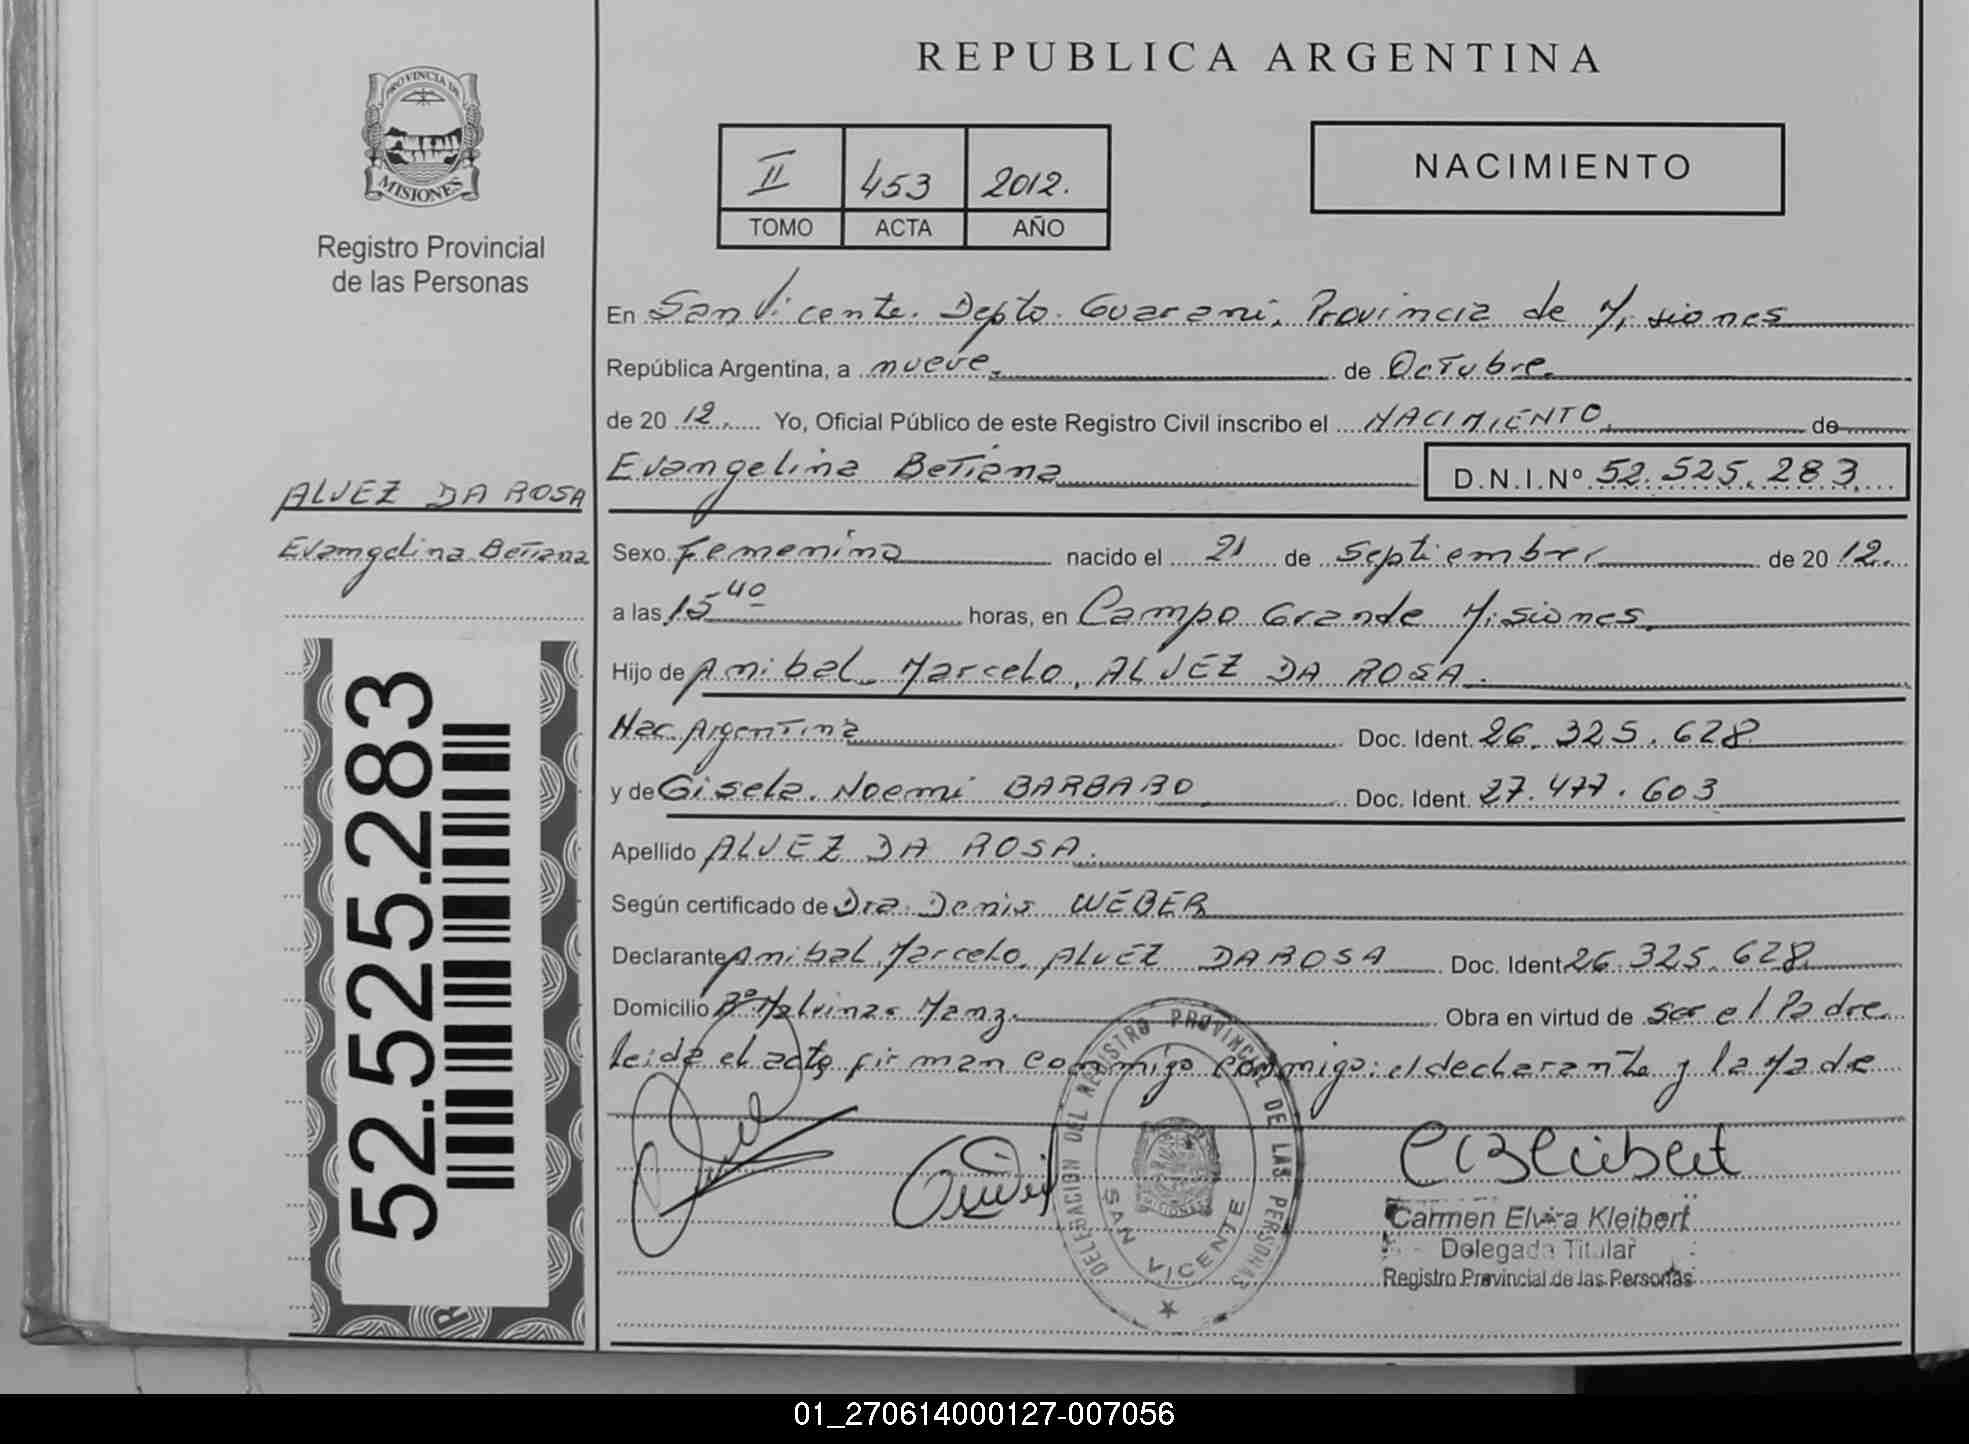 PROVINCIA DE
MISIONES
Registro Provincial
de las Personas
ALVEZ DA ROSA
Evangelina Betiana
52.525.283
REPUBLICA ARGENTINA
II 453 2012.
TOMO ACTA AÑO
NACIMIENTO
En San Vicente. Depto. Guarani, Provincia de Misiones
República Argentina, a nueve. de Octubre.
de 2012. Yo, Oficial Público de este Registro Civil inscribo el NACIMIENTO. de
Evangelina Betiana D.N.I.Nº 52.525.283.
Sexo Femenino nacido el 21 de Septiembre de 2012.
a las 15 40 horas, en Campo Grande Misiones.
Hijo de Anibal Marcelo, ALVEZ DA ROSA.
Nac. Argentina Doc. Ident. 26.325.628
y de Gisela Noemi BARBARO Doc. Ident. 27.477.603
Apellido ALVEZ DA ROSA.
Según certificado de Dra. Denis WEBER
Declarante Anibal Marcelo, ALVEZ DA ROSA Doc. Ident. 26.325.628
Domicilio Bº Malvinas Manz. Obra en virtud de ser el Padre.
Leida el acta, firman conmigo conmigo: el declarante y la Madre
DELEGACION DEL REGISTRO PROVINCIAL DE LAS PERSONAS
SAN VICENTE
MISIONES
CEKleibert
Carmen Elvira Kleibert
Delegada Titular
Registro Provincial de las Personas
01_270614000127-007056